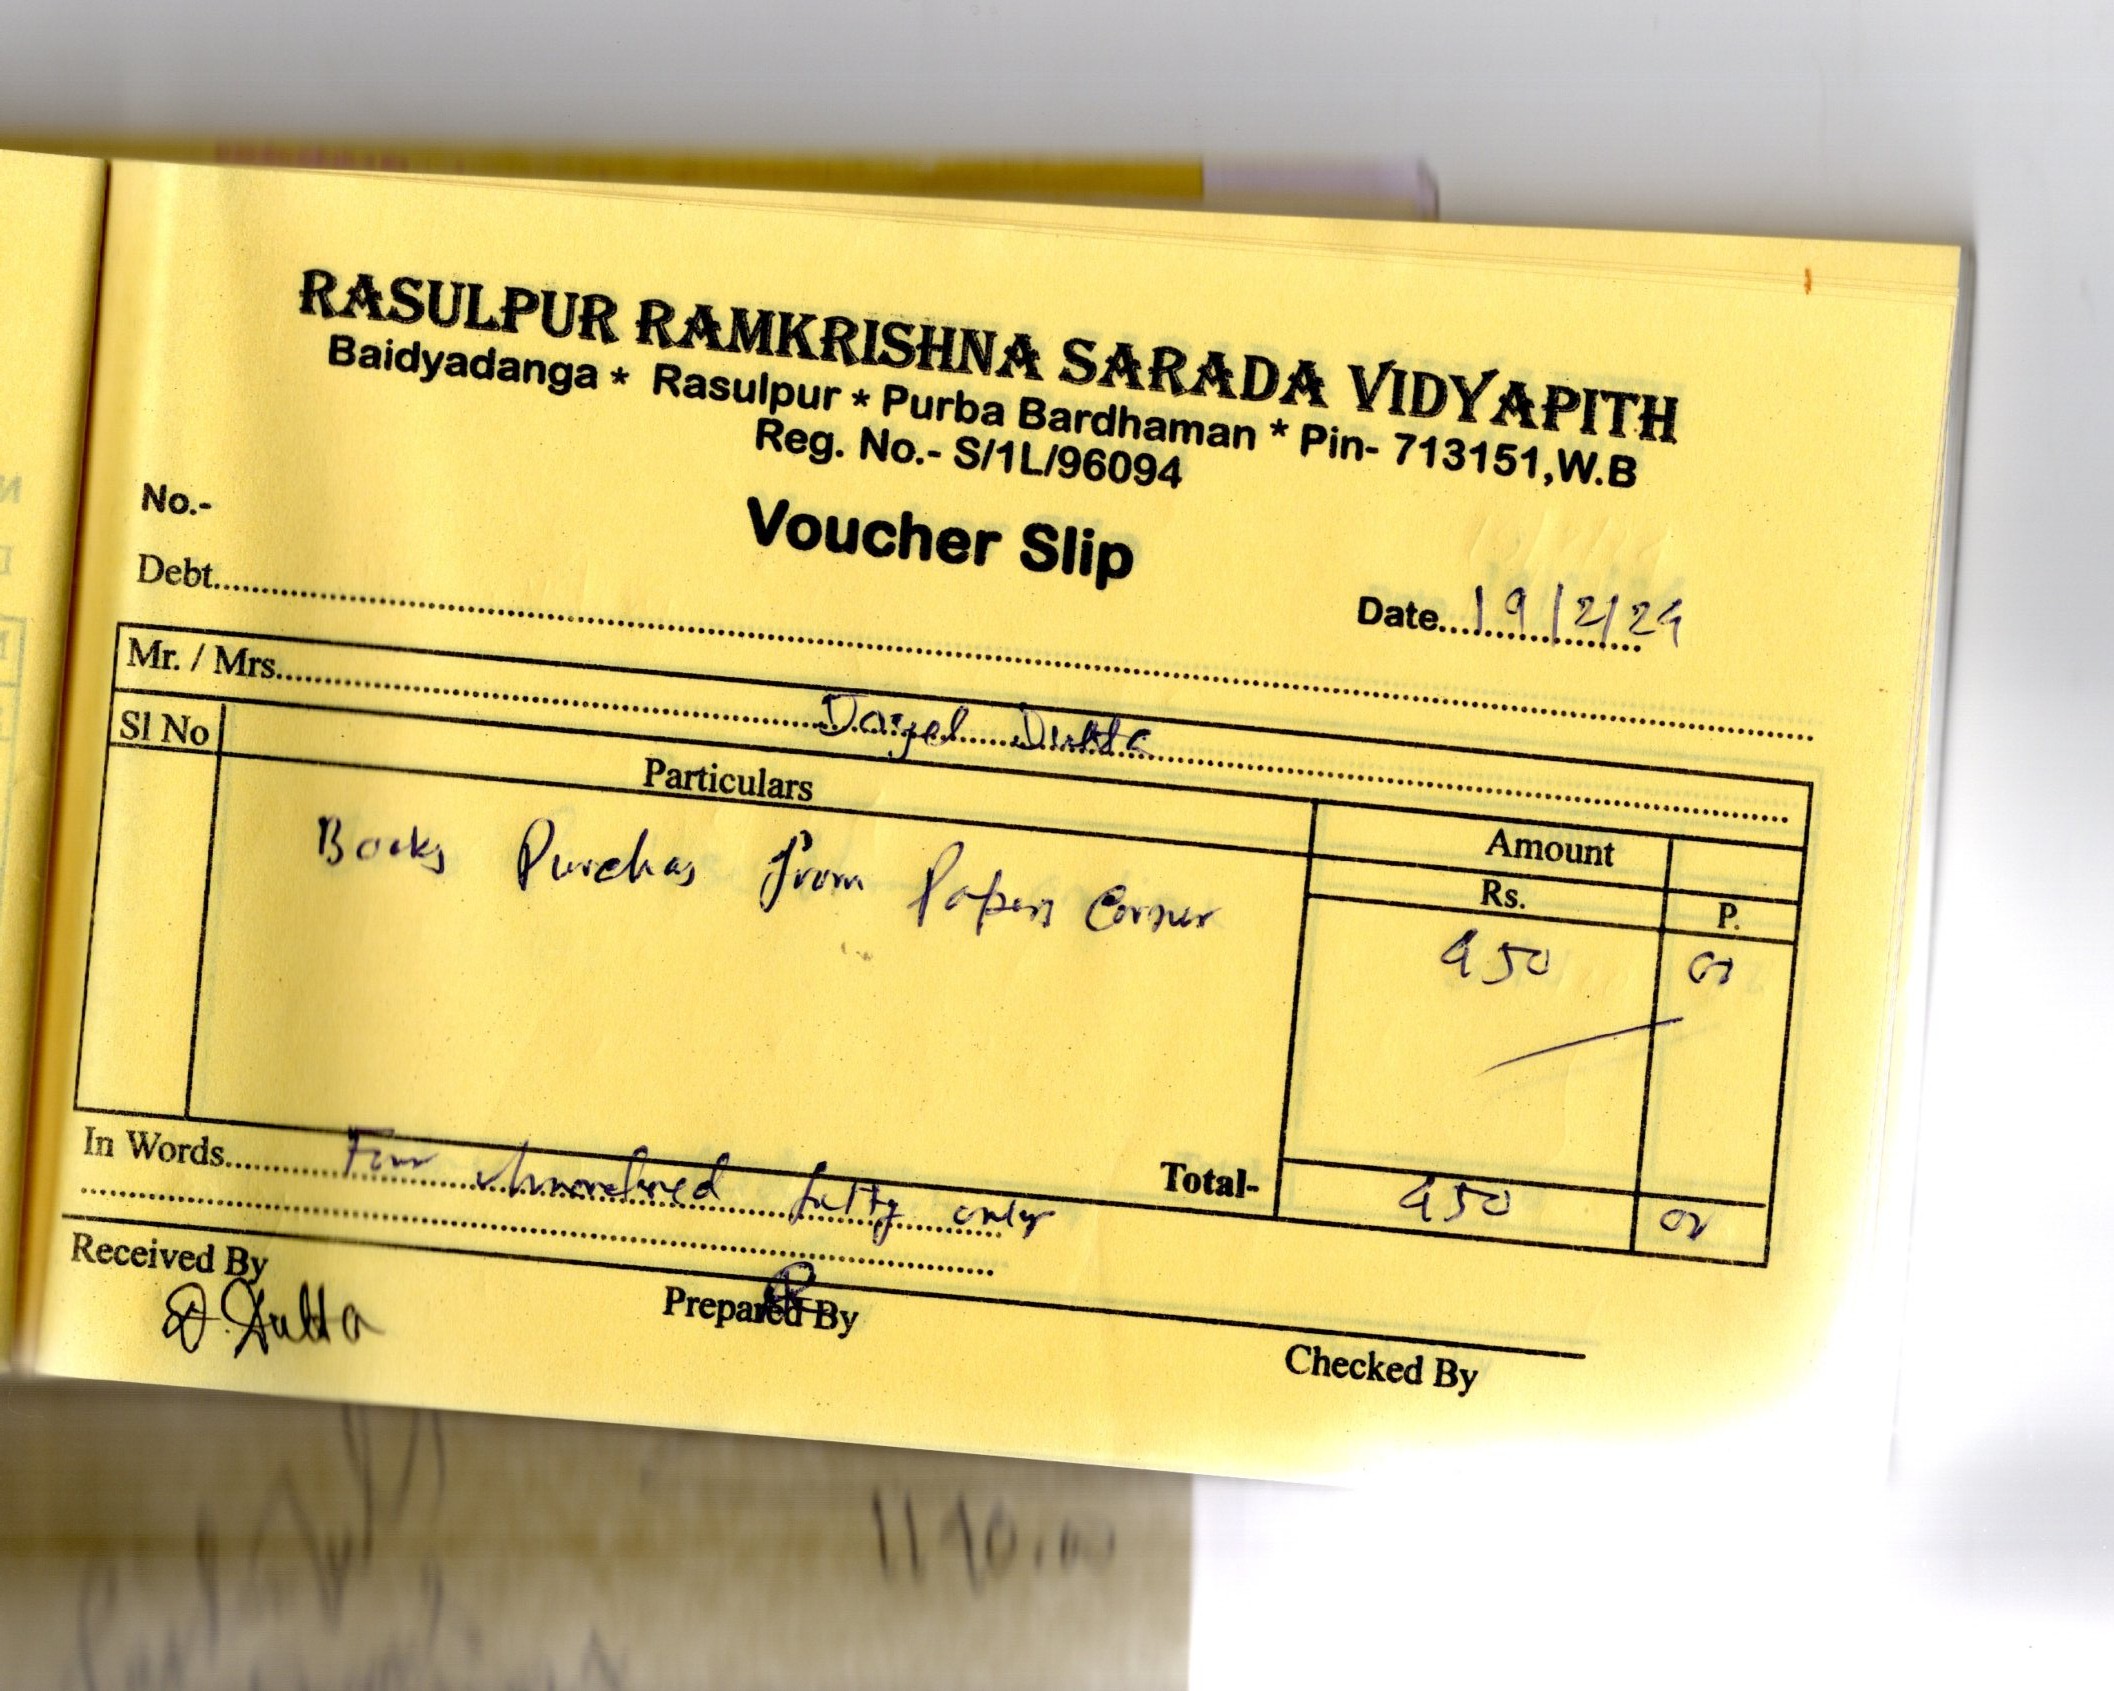 RASULPUR RAMKRISHNA SARADA VIDYAPITH
Baidyadanga * Rasulpur * Purba Bardhaman * Pin- 713151,W.B
Reg. No.- S/1L/96094
No.-
Voucher Slip
Debt
Date 19/2/24
Mr. / Mrs. Dutta
Sl No Particulars Amount
Rs. P.
Books Purchas From Papers Corner 450 00
Total- 450 00
In Words Four hundred fifty only
Received By Prepared By Checked By
D. Dutta
1140.00